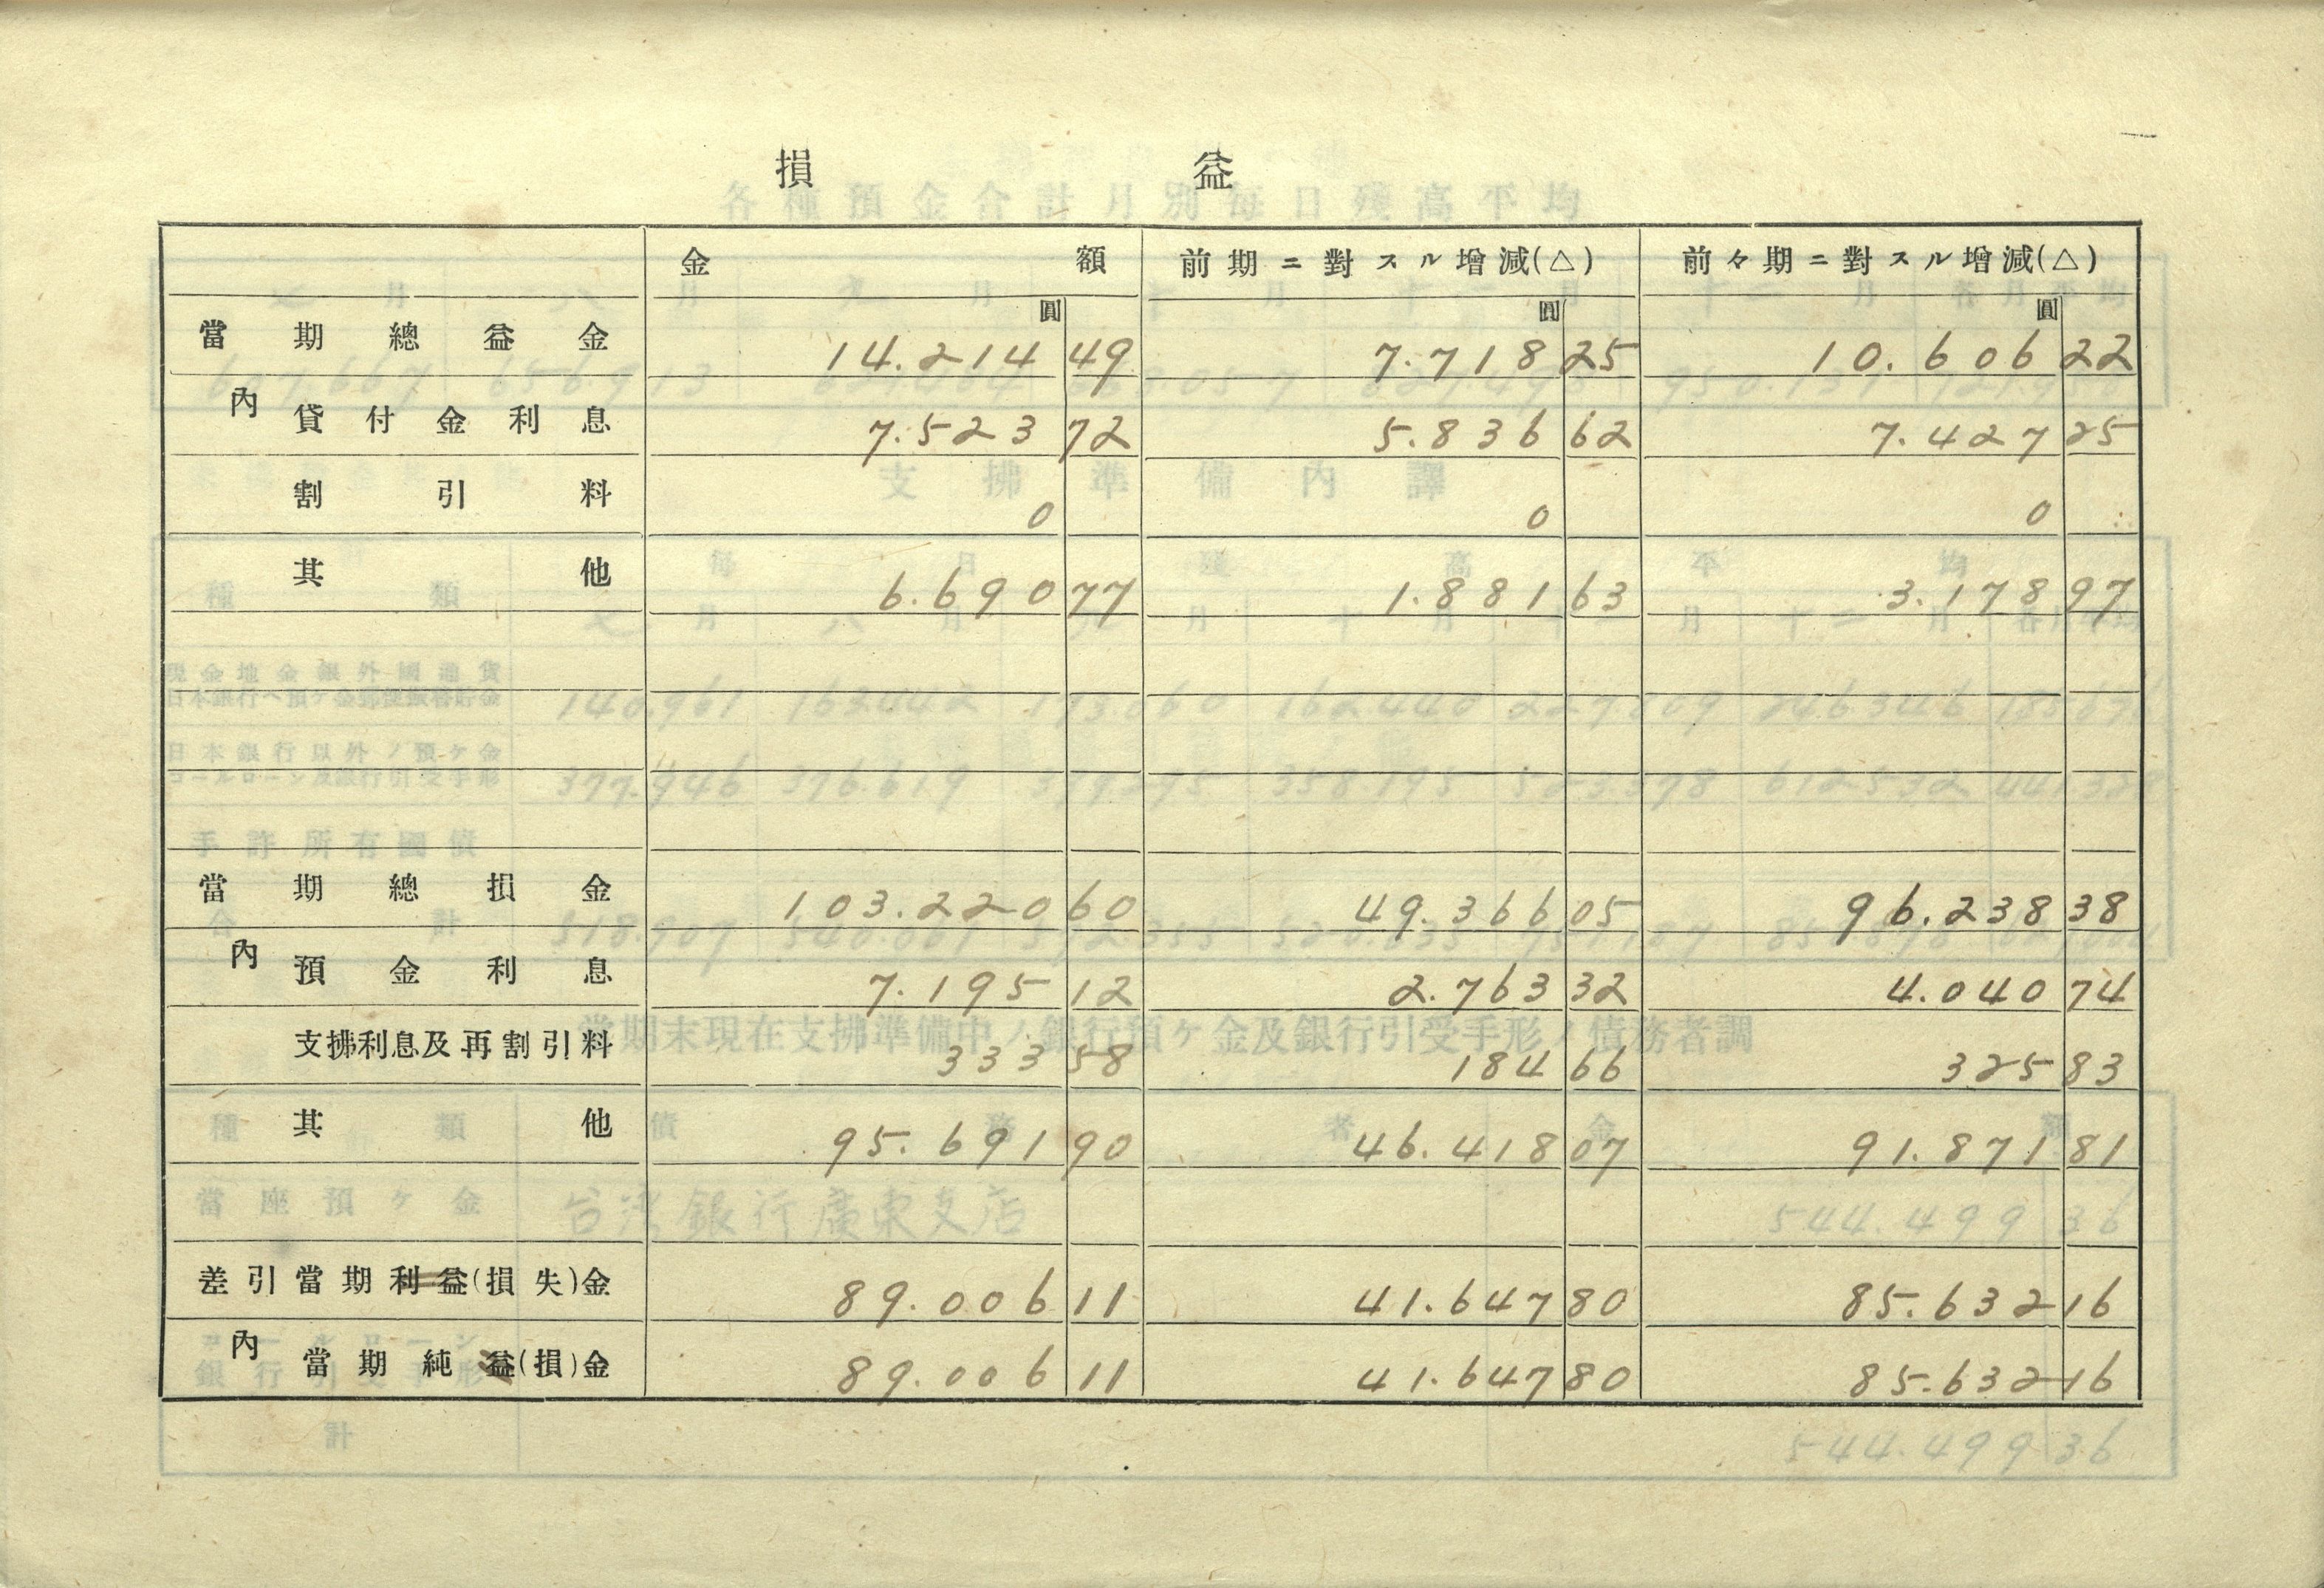 損益
金額 前期ニ對スル增減(△) 前々期ニ對スル增減(△)
圓 圓 圓
當期總益金 14.214 49 7.718 25 10.606 22
內 貸付金利息 7.523 72 5.836 62 7.427 25
割引料 0 0 0
其他 6.690 77 1.881 63 3.178 97
當期總損金 103.220 60 49.366 05 96.238 38
內 預金利息 7.195 12 2.763 32 4.040 74
支拂利息及再割引料 333 58 184 66 325 83
其他 95.691 90 46.418 07 91.871 81
差引當期利益(損失)金 89.006 11 41.647 80 85.632 16
內 當期純益(損)金 89.006 11 41.647 80 85.632 16